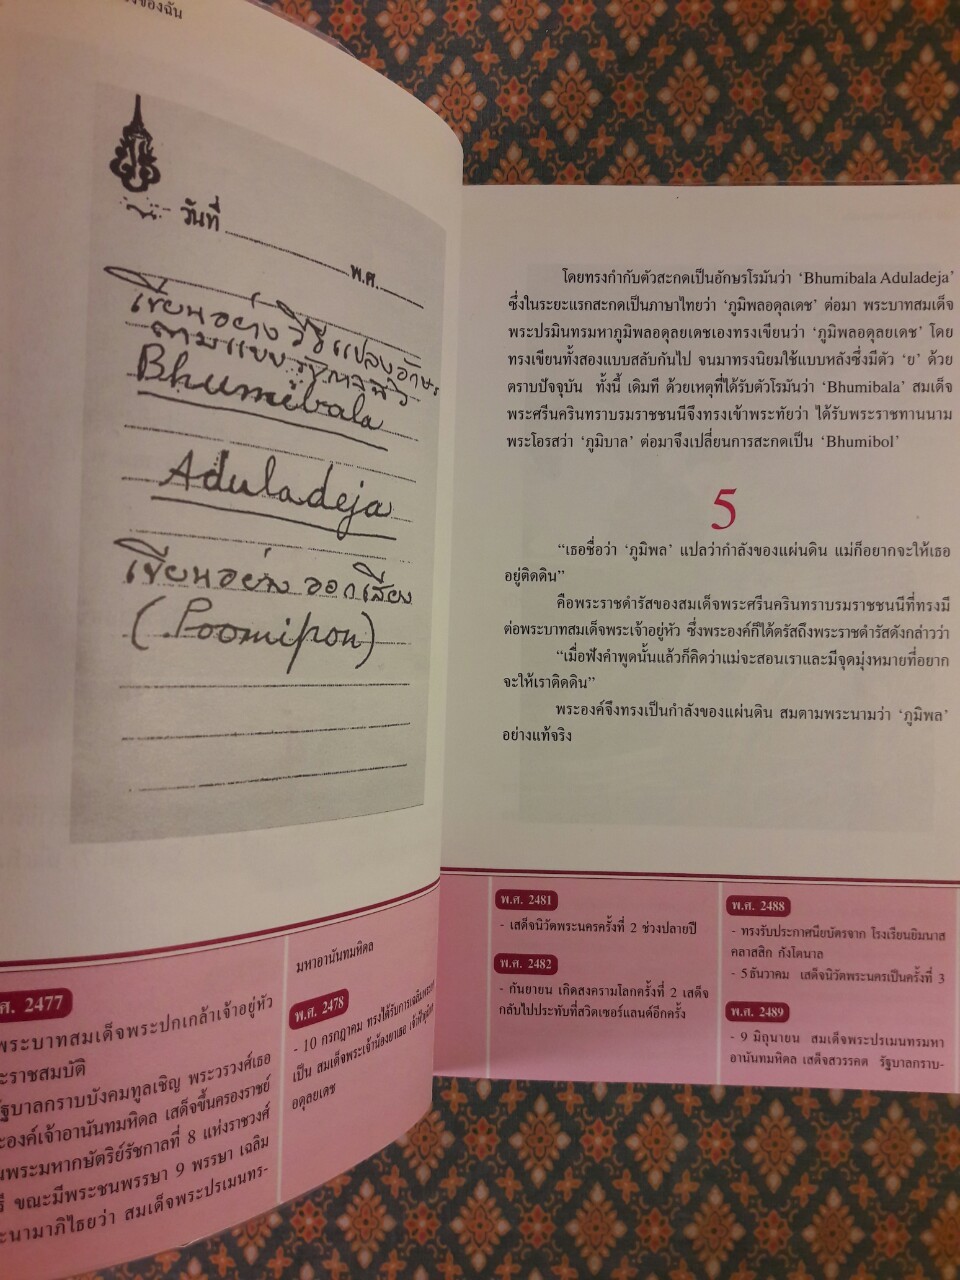 ของฉัน
วันที่
พ.ศ.
เขียนอย่างวิธีแปลงอักษร
ตามแบบรัชกาลที่
Bhumibala
Aduladeja
เขียนอย่าง ออกเสียง
(Poomipon)
โดยทรงกำกับตัวสะกดเป็นอักษรโรมันว่า ‘Bhumibala Aduladeja’
ซึ่งในระยะแรกสะกดเป็นภาษาไทยว่า ‘ภูมิพลอดุลเดช’ ต่อมา พระบาทสมเด็จ
พระปรมินทรมหาภูมิพลอดุลยเดชเองทรงเขียนว่า ‘ภูมิพลอดุลยเดช’ โดย
ทรงเขียนทั้งสองแบบสลับกันไป จนมาทรงนิยมใช้แบบหลังซึ่งมีตัว ‘ย’ ด้วย
ตราบปัจจุบัน ทั้งนี้ เดิมที ด้วยเหตุที่ได้รับตัวโรมันว่า ‘Bhumibala’ สมเด็จ
พระศรีนครินทราบรมราชชนนีจึงทรงเข้าพระทัยว่า ได้รับพระราชทานนาม
พระโอรสว่า ‘ภูมิบาล’ ต่อมาจึงเปลี่ยนการสะกดเป็น ‘Bhumibol’
5
“เธอชื่อว่า ‘ภูมิพล’ แปลว่ากำลังของแผ่นดิน แม่ก็อยากจะให้เธอ
อยู่ติดดิน”
คือพระราชดำรัสของสมเด็จพระศรีนครินทราบรมราชชนนีที่ทรงมี
ต่อพระบาทสมเด็จพระเจ้าอยู่หัว ซึ่งพระองค์ก็ได้ตรัสถึงพระราชดำรัสดังกล่าวว่า
“เมื่อฟังคำพูดนั้นแล้วก็คิดว่าแม่จะสอนเราและมีจุดมุ่งหมายที่อยาก
จะให้เราติดดิน”
พระองค์จึงทรงเป็นกำลังของแผ่นดิน สมตามพระนามว่า ‘ภูมิพล’
อย่างแท้จริง
ศ. 2477
พระบาทสมเด็จพระปกเกล้าเจ้าอยู่หัว
ะราชสมบัติ
รัฐบาลกราบบังคมทูลเชิญ พระวรวงศ์เธอ
ะองค์เจ้าอานันทมหิดล เสด็จขึ้นครองราชย์
นพระมหากษัตริย์รัชกาลที่ 8 แห่งราชวงศ์
รี ขณะมีพระชนมพรรษา 9 พรรษา เฉลิม
ะนามาภิไธยว่า สมเด็จพระปรเมนทร-
มหาอานันทมหิดล
พ.ศ. 2478
- 10 กรกฎาคม ทรงได้รับการเฉลิมพระยศ
เป็น สมเด็จพระเจ้าน้องยาเธอ เจ้าฟ้าภูมิพล
อดุลยเดช
พ.ศ. 2481
- เสด็จนิวัตพระนครครั้งที่ 2 ช่วงปลายปี
พ.ศ. 2482
- กันยายน เกิดสงครามโลกครั้งที่ 2 เสด็จ
กลับไปประทับที่สวิตเซอร์แลนด์อีกครั้ง
พ.ศ. 2488
- ทรงรับประกาศนียบัตรจาก โรงเรียนยิมนาส
คลาสสิก กังโตนาล
- 5 ธันวาคม เสด็จนิวัตพระนครเป็นครั้งที่ 3
พ.ศ. 2489
- 9 มิถุนายน สมเด็จพระปรเมนทรมหา
อานันทมหิดล เสด็จสวรรคต รัฐบาลกราบ-